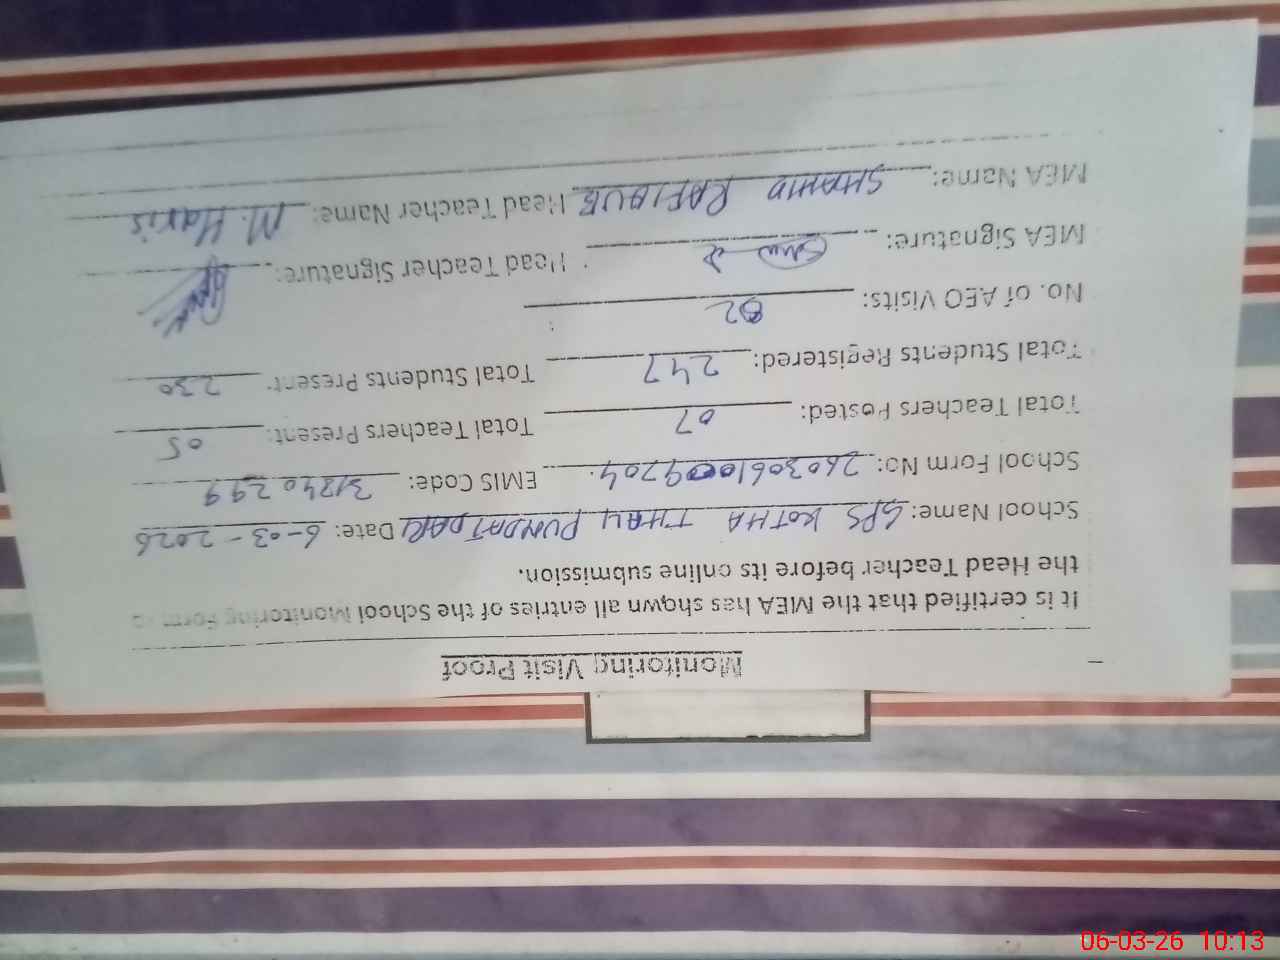 Monitoring Visit Proof
It is certified that the MEA has shown all entries of the School Monitoring Form to
the Head Teacher before its online submission.
School Name: GPS KOTHA THALI PUNDATDARI Date: 6-03-2026
School Form No: EMIS Code: 31240299
Total Teachers Posted: 07 Total Teachers Present: 05
Total Students Registered: 247 Total Students Present: 230
No. of AEO Visits: 02
MEA Signature: Head Teacher Signature:
MEA Name: SHAHID RAFIQUE Head Teacher Name: M. Haris
06-03-26 10:13